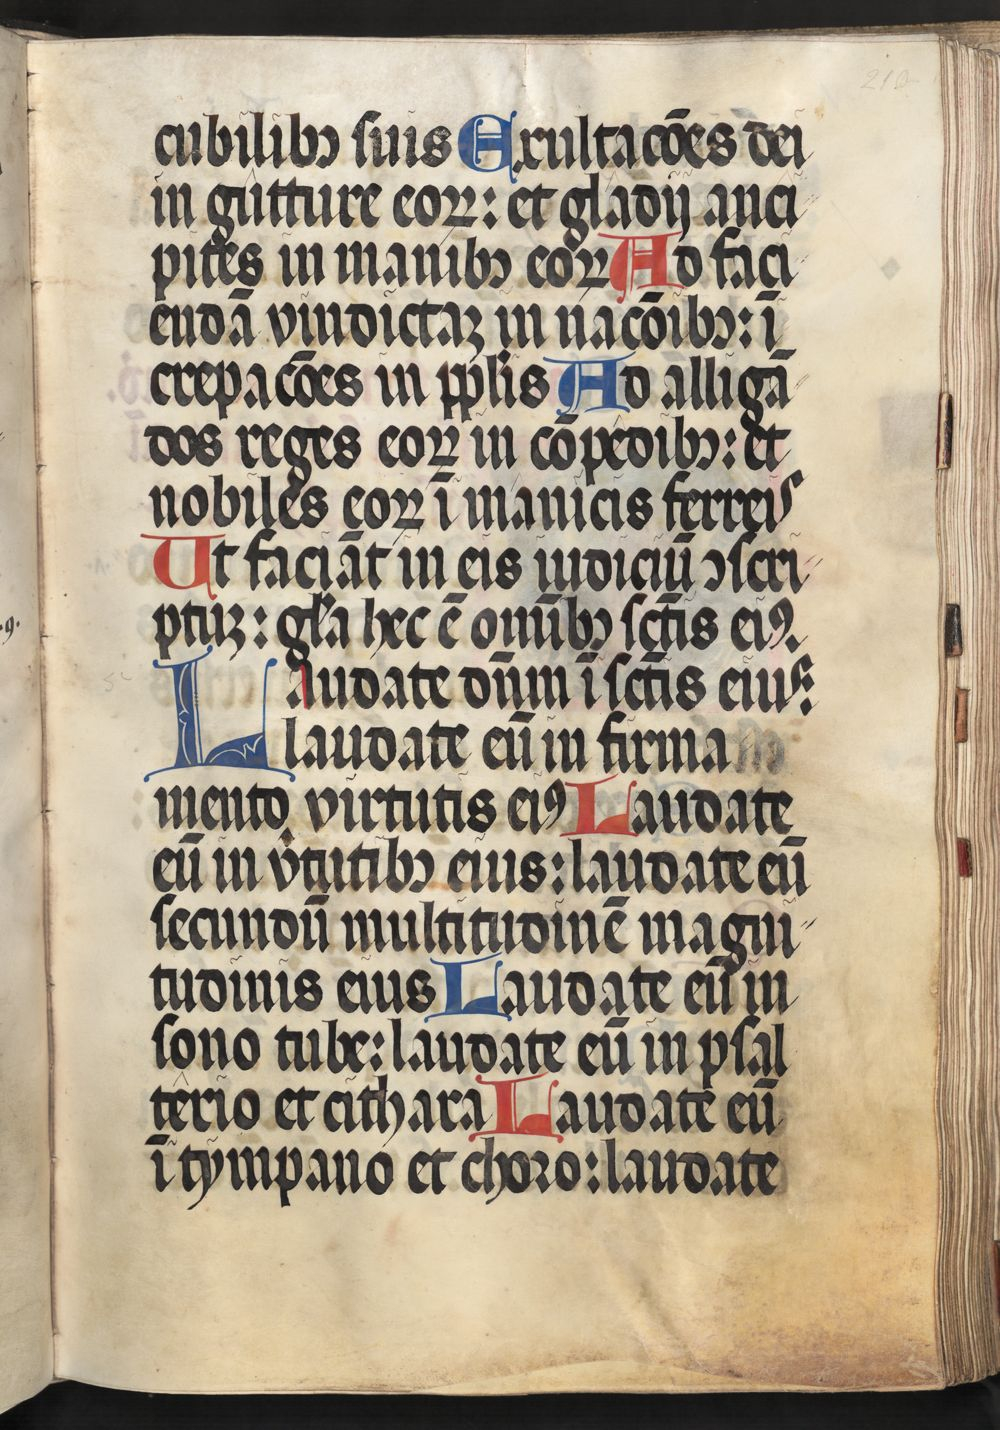 cubilibꝫ suis Exultacōes dei
in gutture eoꝝ: et gladij anci
pites in manibꝫ eoꝝ Ad faci
endā vindictaꝫ in nacōibꝫ: ī
crepacōes in pplis Ad alligā
dos reges eoꝝ in cōpedibꝫ: et
nobiles eoꝝ ī manicis ferreis
Ut faciāt in eis iudiciū ꝯscri
ptuꝫ: gła hec ē omībꝫ sctīs eiꝰ.
Laudate dn̄m ī sctīs eius:
laudate eū in firma
mento virtutis eiꝰ Laudate
eū in v̄tutibꝫ eius: laudate eū
secundū multitudinē magni
tudinis eius Laudate eū in
sono tube: laudate eū in psal
terio et cithara Laudate eū
ī tympano et choro: laudate